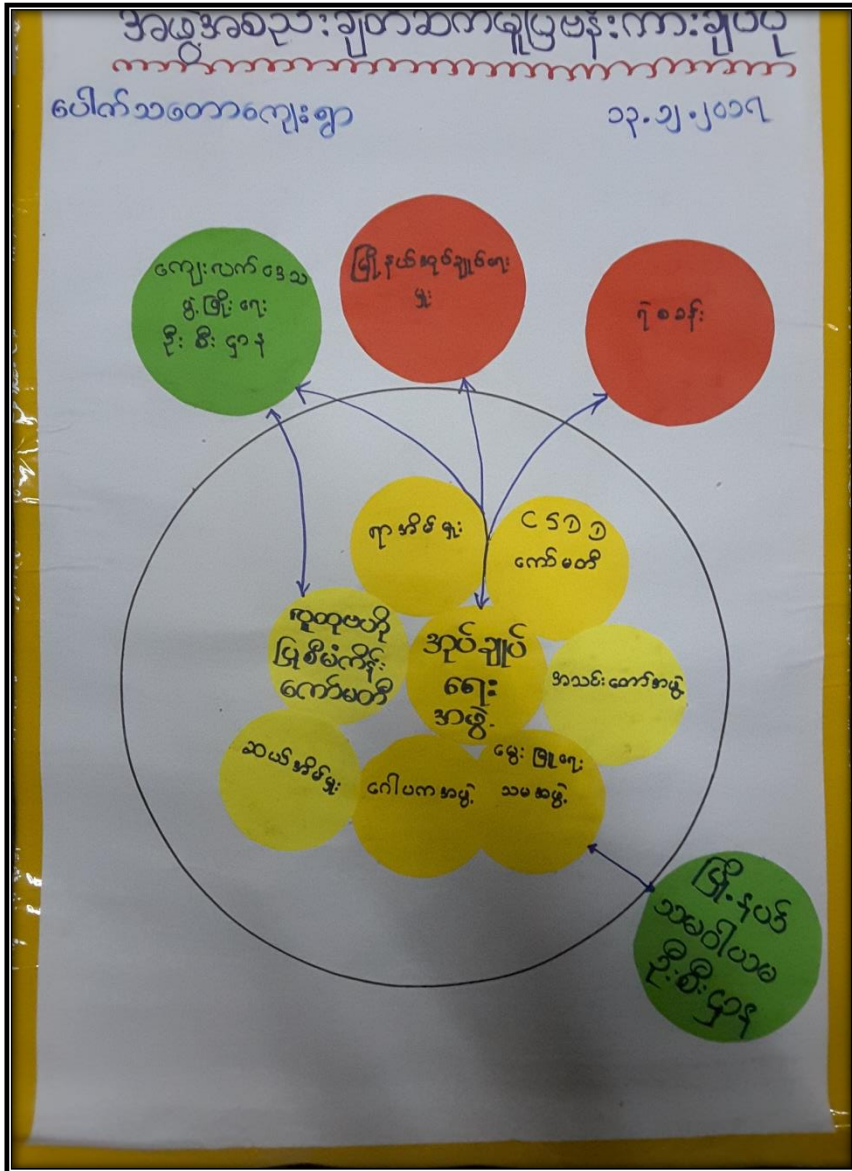 အဖွဲ့အစည်းချိတ်ဆက်မှုပြဗန်းကားချပ်ပုံ
ပေါက်သတောကျေးရွာ ၁၃.၁၂.၂၀၁၇
ကျေးလက်ဒေသ
ဖွံ့ဖြိုးရေး
ဦးစီးဌာန
မြို့နယ်အုပ်ချုပ်ရေး
မှူး
ရဲစခန်း
ရာအိမ်မှူး
CSDD
ကော်မတီ
လူထုဗဟို
ပြုစီမံကိန်း
ကော်မတီ
အုပ်ချုပ်
ရေး
အဖွဲ့
အသင်းတော်အဖွဲ့
ဆယ်အိမ်မှူး
ဂေါပကအဖွဲ့
မွေးမြူရေး
သမအဖွဲ့
မြို့နယ်
သမဝါယမ
ဦးစီးဌာန